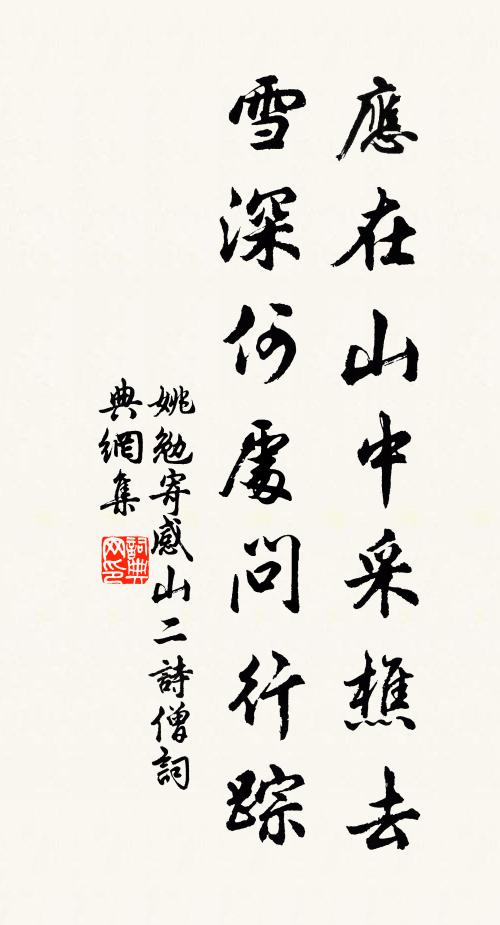 應在山中采樵去
雪深何處問行踪
姚勉寄感山二詩僧詞
典網集
詞典网印